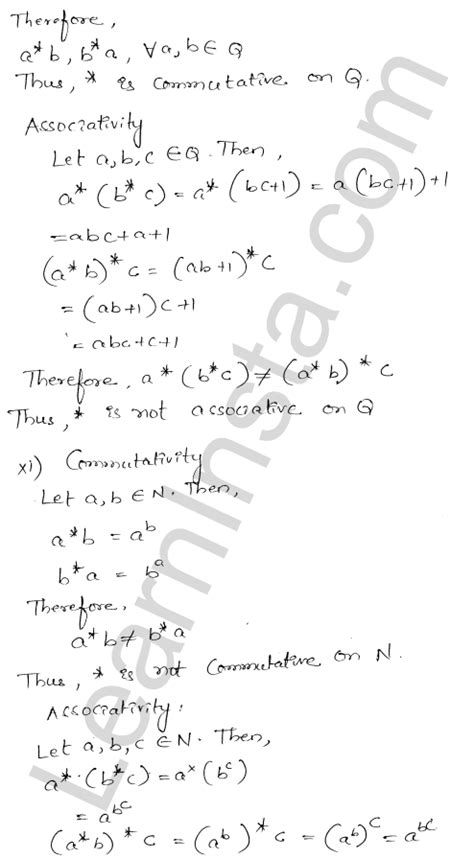 Therefore,
a*b, b*a, ∀a,b∈Q
Thus, * is commutative on Q.
Associativity
Let a,b,c ∈Q. Then,
a* (b* c) = a* (bc+1) = a (bc+1)+1
=abc+a+1
(a*b)* c = (ab+1)*c
= (ab+1)c+1
= abc+c+1
Therefore, a* (b*c) ≠ (a*b)* c
Thus, * is not associative on Q
xi) Commutativity
Let a,b ∈ N. Then,
a*b = a^b
b*a = b^a
Therefore,
a*b ≠ b*a
Thus, * is not commutative on N.
Associativity:
Let a,b,c ∈N. Then,
a*.(b*c) = a^x (b^c)
= a^b^c
(a*b)* c = (a^b)* c = (a^b)^c = a^bc
LearnInsta.com